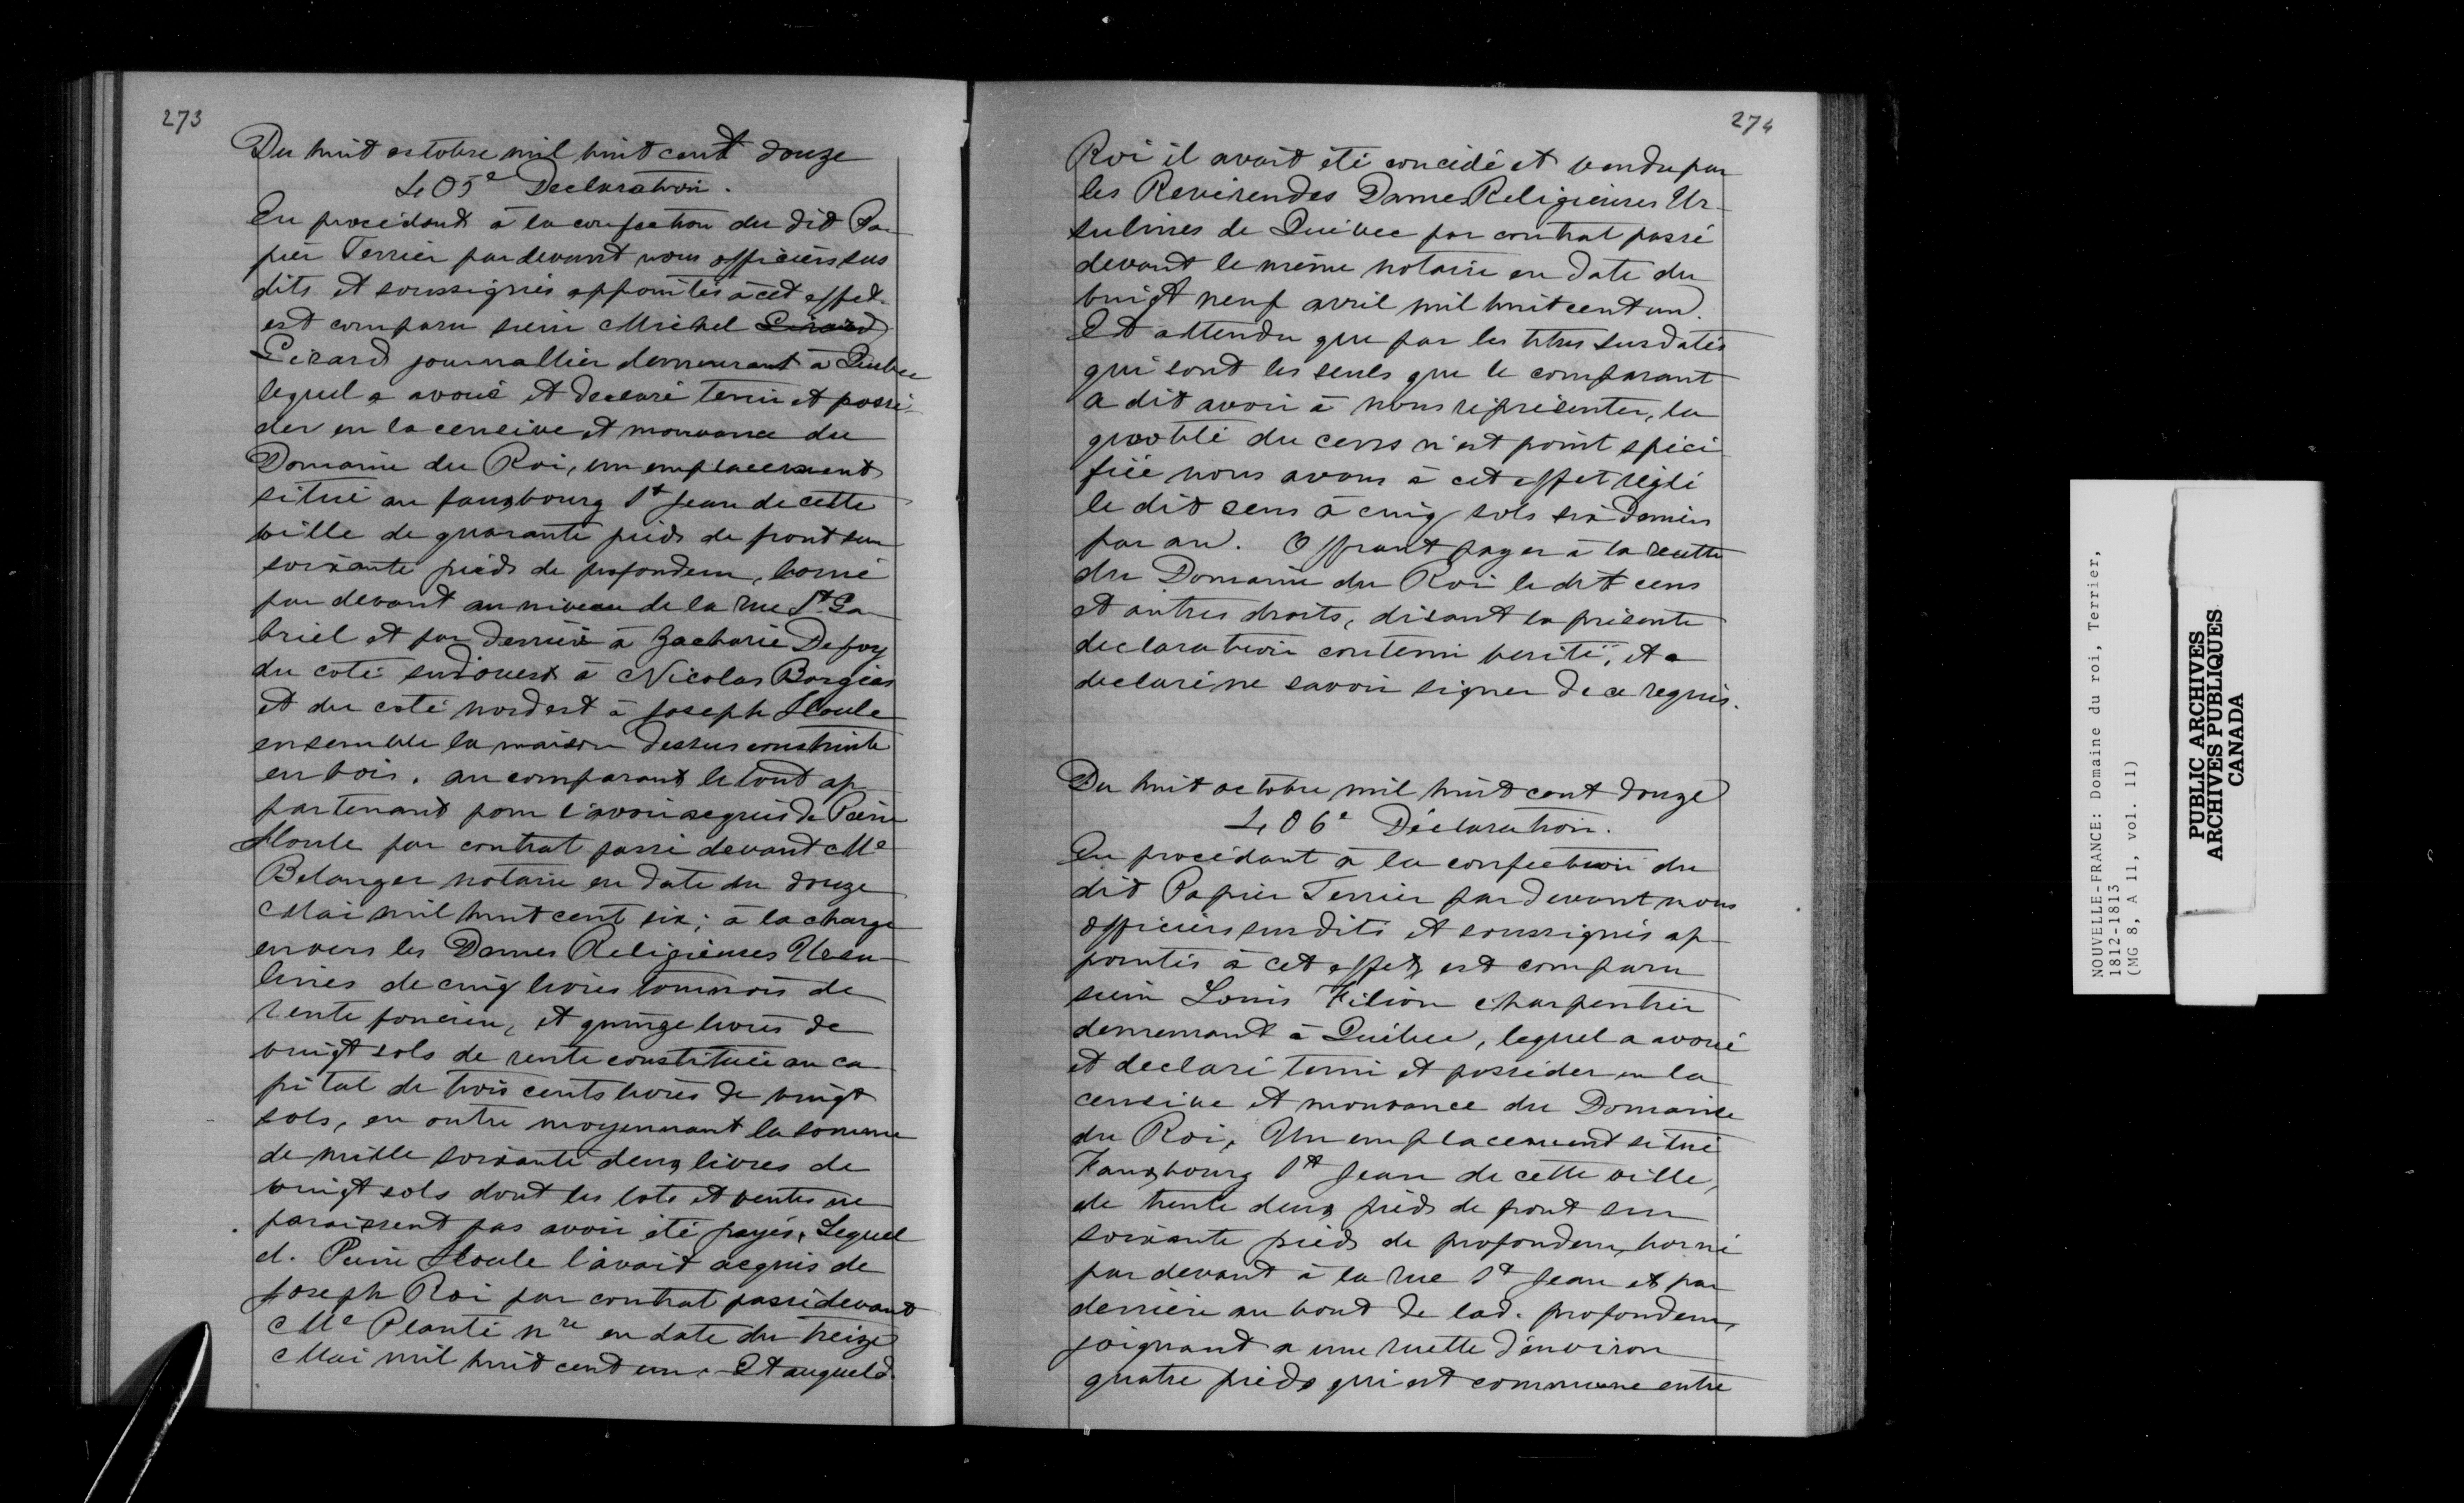 273
Du huit octobre mil huit cent douze
405e Declaration.
En procédant à la confection du dit Pa-
pier Terrier par devant nous officiers sus
dits et soussignés appointés à cet effet
est comparu sieur Michel Girard
Girard journallier demeurant à Quebec
lequel a avoué et declaré tenir et possé-
der en la censive et mouvance du
Domaine du Roi, un emplacement
situé au fauxbourg St Jean de cette
ville de quarante pieds de front sur
soixante pieds de profondeur, borné
par devant au niveau de la rue St Ga-
briel et par derriere à Zacharie Defoy
du coté sudouest à Nicolas Borgias
et du coté nordest à Joseph Houle
ensemble la maison dessus construite
en bois. au comparant le tout ap-
partenant pour l'avoir acquis de Pierre
Houle par contrat passé devant Me
Belanger notaire en date du douze
Mai mil huit cent six; à la charge
envers les Dames Religieuses Ursu-
lines de cinq livres tournois de
rente fonciere, et quinze livres de
vingt sols de rente constituée au ca-
pital de trois cents livres de vingt
sols, en outre moyennant la somme
de mille soixante deux livres de
vingt sols dont les lots et ventes ne
paraissent pas avoir été payés. Lequel
d. Pierre Houle l'avait acquis de
Joseph Roi par contrat passé devant
Me Planté nre en date du treize
Mai mil huit cent un. Et auquel d.
274
Roi il avait été concédé et vendu par
les Reverendes Dames Religieuses Ur-
sulines de Québec par contrat passé
devant le même notaire en date du
vingt neuf avril mil huit cent un.
Et attendu que par les titres susdatés
qui sont les seuls que le comparant
a dit avoir à nous représenter, la
quotité du cens n'est point spéci
fiée nous avons à cet effet réglé
le dit cens à cinq sols six deniers
par an. Offrant payer à la recette
du Domaine du Roi le dit cens
et autres droits, disant la présente
declaration contenir verité, et a
declaré ne savoir signer de ce requis.
Du huit octobre mil huit cent douze
406e Déclaration.
En procédant à la confection du
dit Papier Terrier par devant nous
officiers susdits et soussignés ap-
pointés à cet effet, est comparu
sieur Louis Filion charpentier
demeurant à Québec, lequel a avoué
et declaré tenir et posséder en la
censive et mouvance du Domaine
du Roi, Un emplacement situé
Fauxbourg St Jean de cette ville,
de trente deux pieds de front sur
soixante pieds de profondeur, borné
par devant à la rue St Jean et par
derrière au bout de lad. profondeur,
joignant a une ruette d'environ
quatre pieds qui est commune entre
NOUVELLE-FRANCE: Domaine du roi, Terrier,
1812-1813
(MG 8, A 11, vol. 11)
PUBLIC ARCHIVES
ARCHIVES PUBLIQUES
CANADA